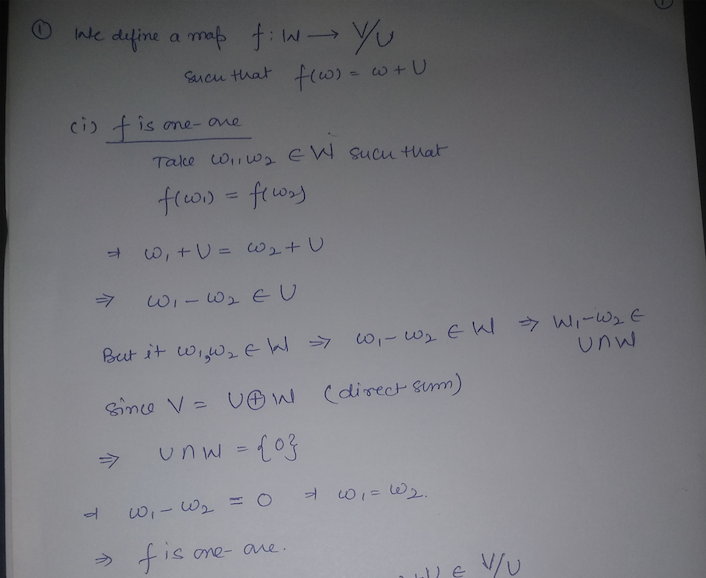 ① We define a map f: W → V/U
such that f(w) = w + U
(i) f is one-one
Take w₁, w₂ ∈ W such that
f(w₁) = f(w₂)
⇒ w₁ + U = w₂ + U
⇒ w₁ - w₂ ∈ U
But it w₁, w₂ ∈ W ⇒ w₁ - w₂ ∈ W ⇒ w₁ - w₂ ∈
U ∩ W
since V = U ⊕ W (direct sum)
⇒ U ∩ W = {0}
⇒ w₁ - w₂ = 0 ⇒ w₁ = w₂.
⇒ f is one-one.
∈ V/U